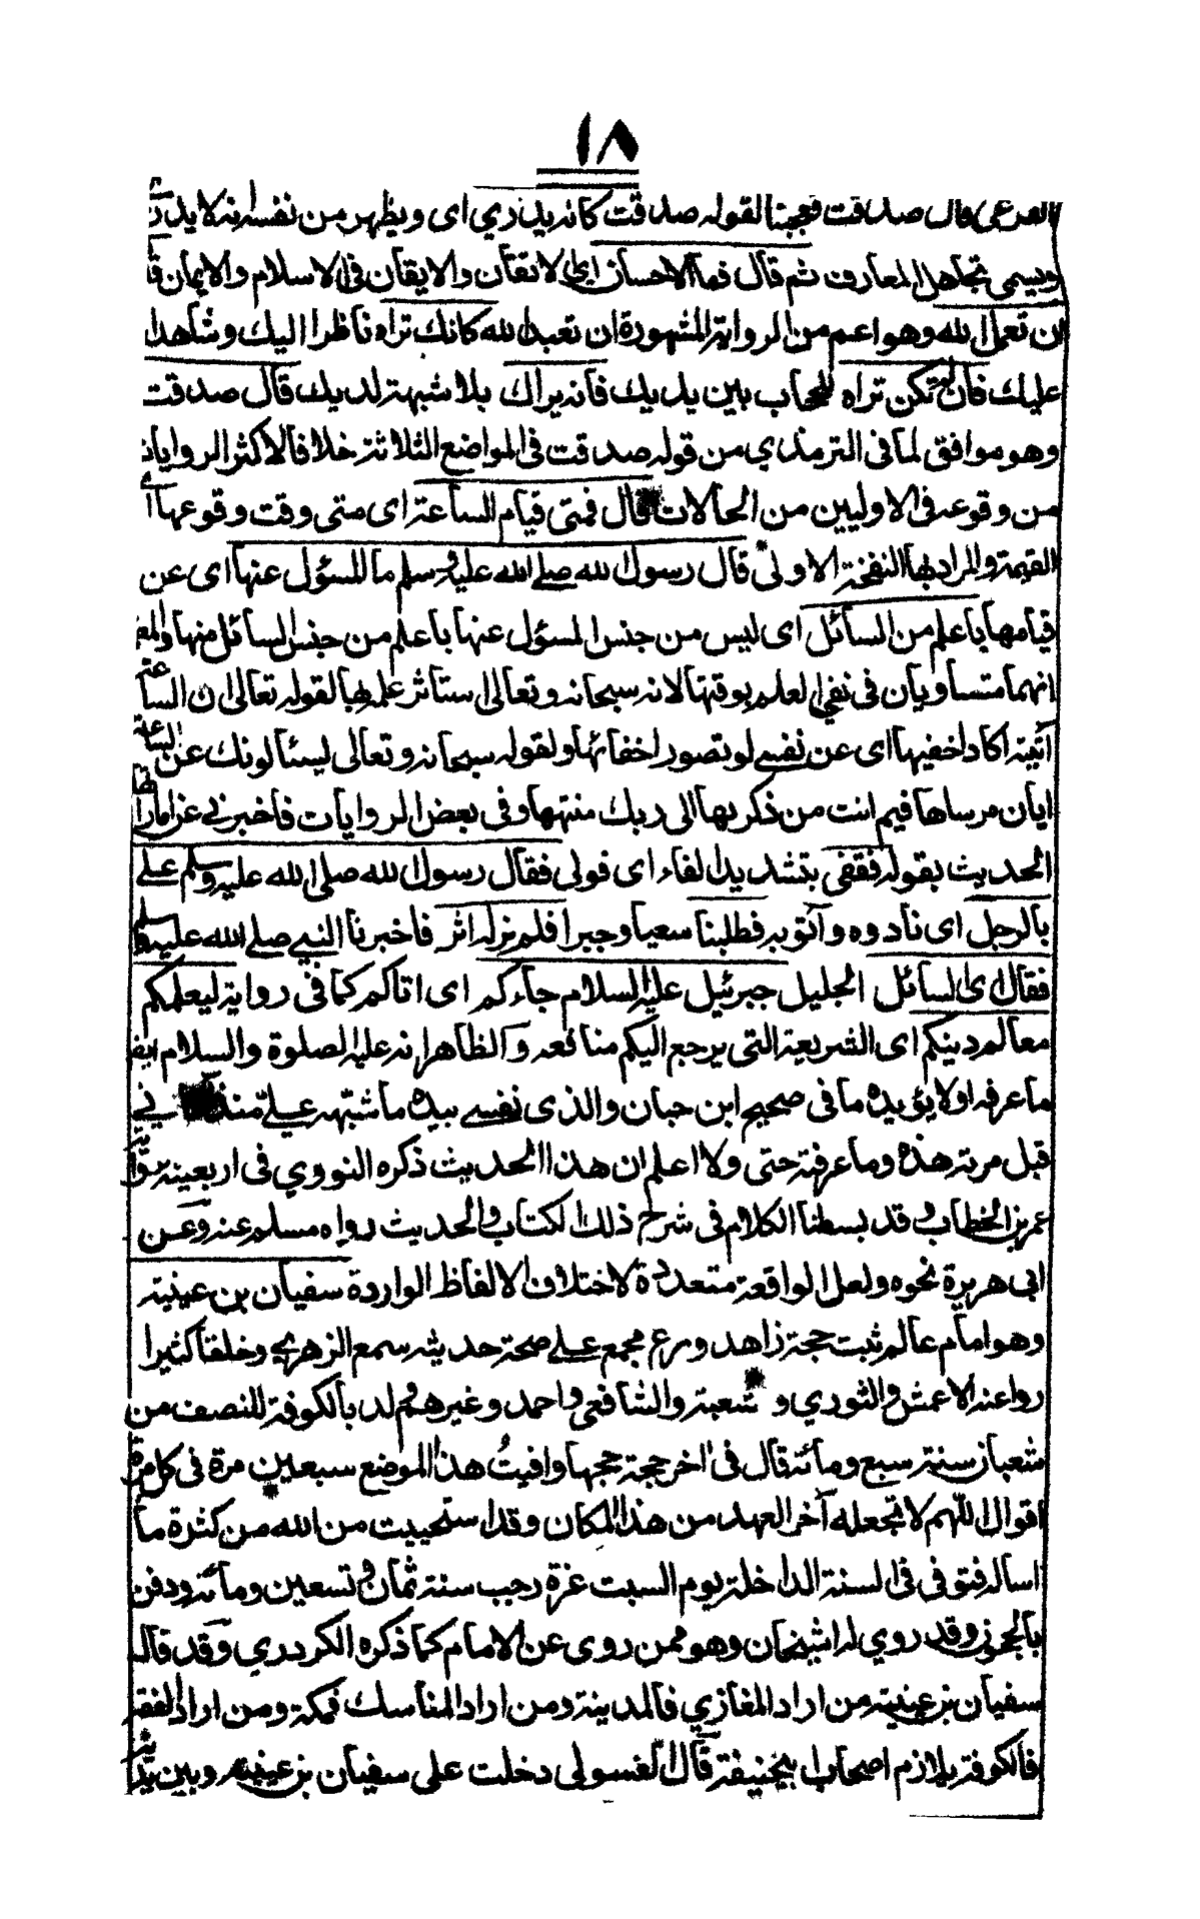 ١٨
العرعى قال صدقت فعجبنا لقوله صدقت كانه يدري اى ويظهر من نفسه انه لا يدر
ويسمى تجاهل المعارف ثم قال فما الاحسان اى الاتقان والايقان فى الاسلام والايمان قا
ان تعمل لله وهو اعم من الرواية المشهورة ان تعبد الله كانك تراه ناظرا اليك وشاهدا
عليك فان لم تكن تراه للحجاب بين يديك فانه يراك بلا شبهة لديك قال صدقت
وهو موافق لما فى الترمذي من قوله صدقت فى المواضع الثلاثة خلافا لاكثر الروايات
من وقوعه فى الاوليين من الحالات قال فمتى قيام الساعة اى متى وقت وقوعها
القيمة والمراد بها النفخة الاولى قال رسول الله صلى الله عليه وسلم ما المسؤل عنها اى عن
قيامها باعلم من السائل اى ليس من جنس المسؤل عنها باعلم من جنس السائل منها والمعنى
انهما متساويان فى نفى العلم بوقتها لانه سبحانه وتعالى استاثر علمها لقوله تعالى ان الساعة
آتية اكاد اخفيها اى عن نفسى لو تصور اخفائها ولقوله سبحانه وتعالى يسئالونك عن الساعة
ايان مرساها فيم انت من ذكريها الى ربك منتهها وفى بعض الروايات فاخبرنى عن اماراتها
الحديث بقوله فقفى بتشديد الفاء اى فولى فقال رسول الله صلى الله عليه وسلم على
بالرجل اى نادوه وآتو به فطلبنا سعيا وجبرا فلم نر له اثر فاخبرنا النبى صلى الله عليه وسلم
فقال اى السائل الجليل جبرئيل عليه السلام جاءكم اى اتاكم كما فى رواية ليعلمكم
معالم دينكم اى الشريعة التى يرجع اليكم منافعه والظاهر انه عليه الصلوة والسلام ايضا
ما عرفه اولا يؤيده ما فى صحيح ابن حبان والذى نفسى بيده ما شبه على منذ فى
قبل مرته هذه وما عرفته حتى ولا اعلم ان هذا الحديث ذكره النووي فى اربعينه برواية
عمر بن الخطاب وقد بسطنا الكلام فى شرح ذلك الكتاب والحديث رواه مسلم عنه وعن
ابى هريرة نحوه ولعل الواقعة متعددة لاختلاف الالفاظ الواردة سفيان بن عيينة
وهو امام عالم ثبت حجة زاهد ورع مجمع على صحة حديثه سمع الزهرى وخلقا كثيرا
روا عنه الاعمش والثوري و شعبة والشافعى واحمد وغيرهم ولد بالكوفة للنصف من
شعبان سنة سبع ومائة قال فى اخر حجة حجها وافيت هذا الموضع سبعين مرة فى كل مرة
اقول اللهم لا تجعله آخر العهد من هذا المكان وقد استحييت من الله من كثرة ما
اساله فتوفى فى السنة الداخلة يوم السبت غرة رجب سنة ثمان وتسعين ومائة ودفن
بالحجون وقد روي له اشيخان وهو ممن روى عن الامام كما ذكره الكردري وقد قال
سفيان بن عيينة من اراد المغازي فالمدينة ومن اراد المناسك فمكة ومن اراد الفقه
فالكوفة يلازم اصحاب بيحنيفة قال الغسولى دخلت على سفيان بن عيينه وبين يديه